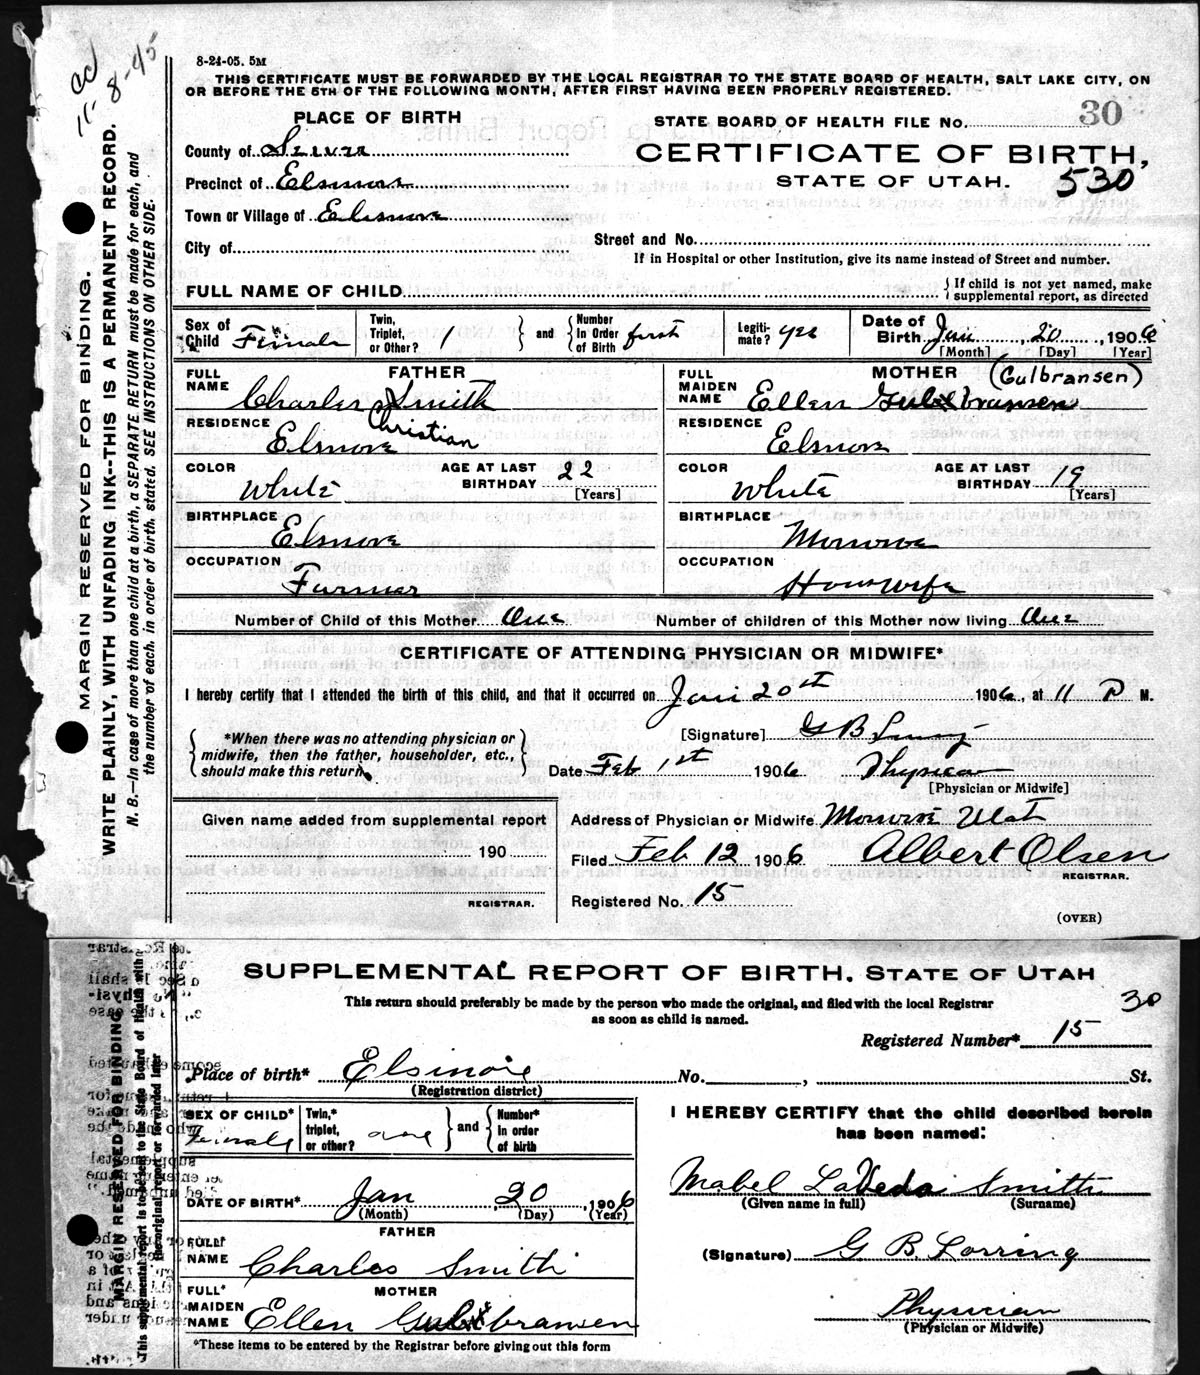 8-24-05. 5M
THIS CERTIFICATE MUST BE FORWARDED BY THE LOCAL REGISTRAR TO THE STATE BOARD OF HEALTH, SALT LAKE CITY, ON
OR BEFORE THE 5TH OF THE FOLLOWING MONTH, AFTER FIRST HAVING BEEN PROPERLY REGISTERED.
11-8-45
MARGIN RESERVED FOR BINDING.
WRITE PLAINLY, WITH UNFADING INK--THIS IS A PERMANENT RECORD.
N. B.—In case of more than one child at a birth, a SEPARATE RETURN must be made for each, and
the number of each, in order of birth, stated. SEE INSTRUCTIONS ON OTHER SIDE.
PLACE OF BIRTH
STATE BOARD OF HEALTH FILE No. 30
County of Sevier
CERTIFICATE OF BIRTH,
Precinct of Elsinore
STATE OF UTAH. 530
Town or Village of Elsinore
City of
Street and No.
If in Hospital or other Institution, give its name instead of Street and number.
FULL NAME OF CHILD
If child is not yet named, make
supplemental report, as directed
Sex of Child Female
Twin, Triplet, or Other? 1 and Number In Order of Birth first
Legitimate? yes
Date of Birth Jan 20, 1906
[Month] [Day] [Year]
FATHER
FULL NAME Charles Smith
Christian
RESIDENCE Elsinore
COLOR White
AGE AT LAST BIRTHDAY 22
[Years]
BIRTHPLACE Elsinore
OCCUPATION Farmer
MOTHER (Gulbransen)
FULL MAIDEN NAME Ellen Gulbransen
RESIDENCE Elsinore
COLOR White
AGE AT LAST BIRTHDAY 19
[Years]
BIRTHPLACE Monroe
OCCUPATION Housewife
Number of Child of this Mother One
Number of children of this Mother now living One
CERTIFICATE OF ATTENDING PHYSICIAN OR MIDWIFE*
I hereby certify that I attended the birth of this child, and that it occurred on Jan 20th 1906, at 11 P M.
*When there was no attending physician or
midwife, then the father, householder, etc.,
should make this return.
[Signature] G B
Date Feb 1st 1906
Physician
[Physician or Midwife]
Given name added from supplemental report
190
REGISTRAR.
Address of Physician or Midwife Monroe Utah
Filed Feb 12 1906 Albert Olsen
REGISTRAR.
Registered No. 15
(OVER)
SUPPLEMENTAL REPORT OF BIRTH. STATE OF UTAH
This return should preferably be made by the person who made the original, and filed with the local Registrar
as soon as child is named.
30
Registered Number* 15
MARGIN RESERVED FOR BINDING
This supplemental report is to be sent to the State Board of Health with
the original report or forwarded later
Place of birth* Elsinore No. , St.
(Registration district)
SEX OF CHILD* Female
Twin,* triplet, or other? one and Number* in order of birth
DATE OF BIRTH* Jan 20, 1906
(Month) (Day) (Year)
FATHER
FULL* NAME Charles Smith
MOTHER
FULL* MAIDEN NAME Ellen Gulbransen
*These items to be entered by the Registrar before giving out this form
I HEREBY CERTIFY that the child described herein
has been named:
Mabel LaVeda Smith
(Given name in full) (Surname)
(Signature) G B Lorring
Physician
(Physician or Midwife)